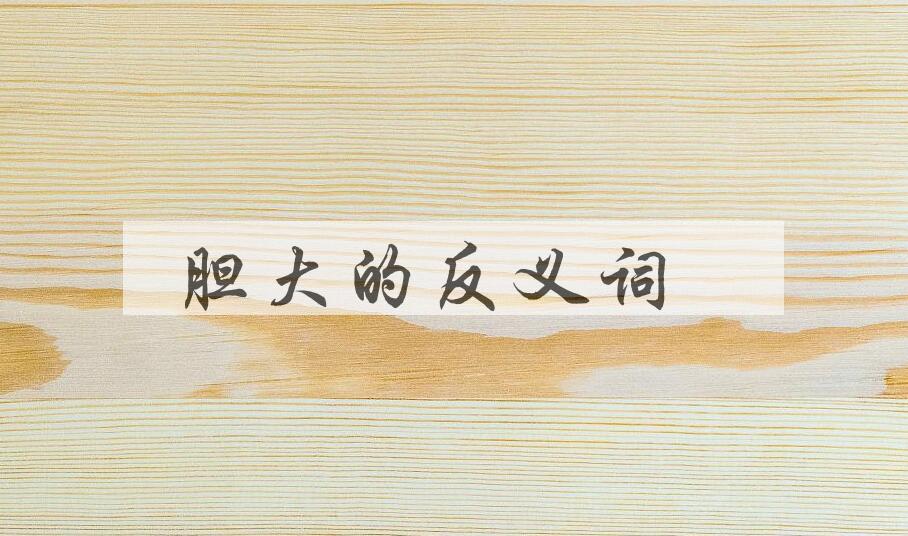 胆大的反义词